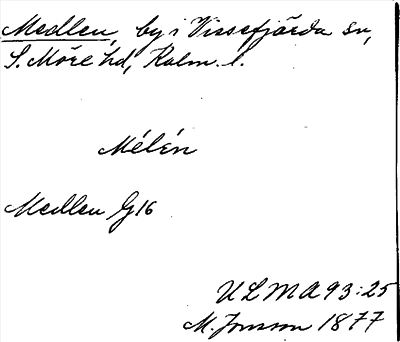 Medlen, by i Vissefjärda sn,
S. Möre hd, Kalm. l.
Mélén
Medlen G16
ULMA 93:25
M. Jonsson 1877